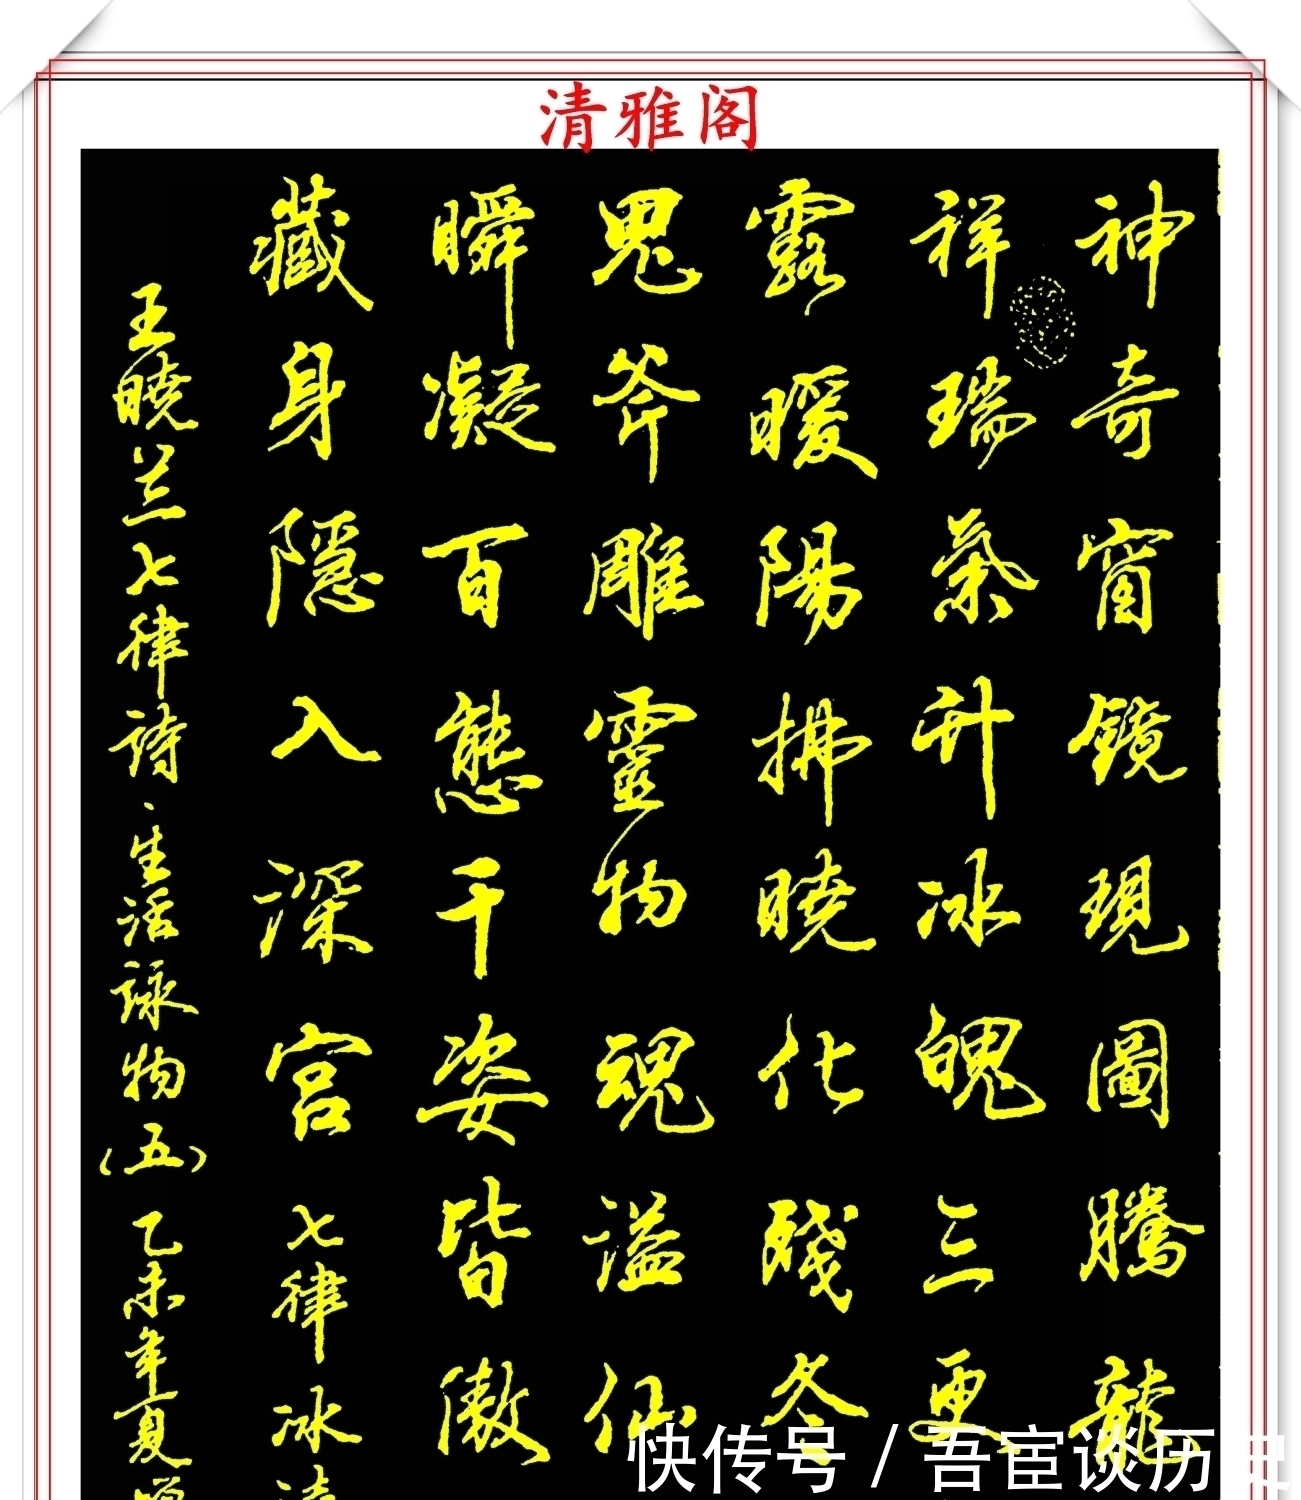 清雅阁
神奇窗鏡現圖騰龍
祥瑞氣升冰魄三更
露暖陽拂曉化殘冬
鬼斧雕靈物魂溢仙
瞬凝百態千姿皆傲
藏身隱入深宮七律冰凌
王曉兰七律诗、生活詠物(五)乙未年夏曉
快传号/吾宦谈历史